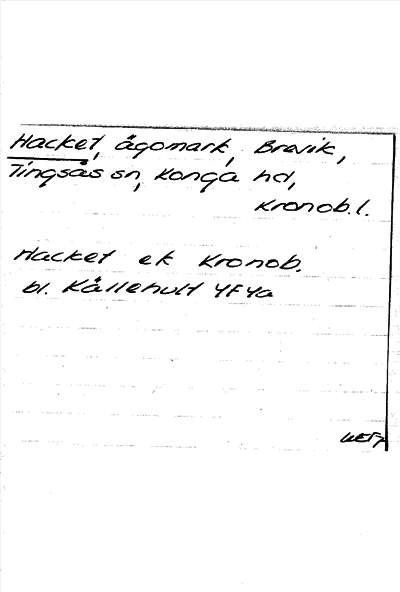 Hacket, ägomark, Brevik,
Tingsås sn, Konga hd,
Kronob.l.
Hacket ek Kronob.
bl. Källehult 4F4a